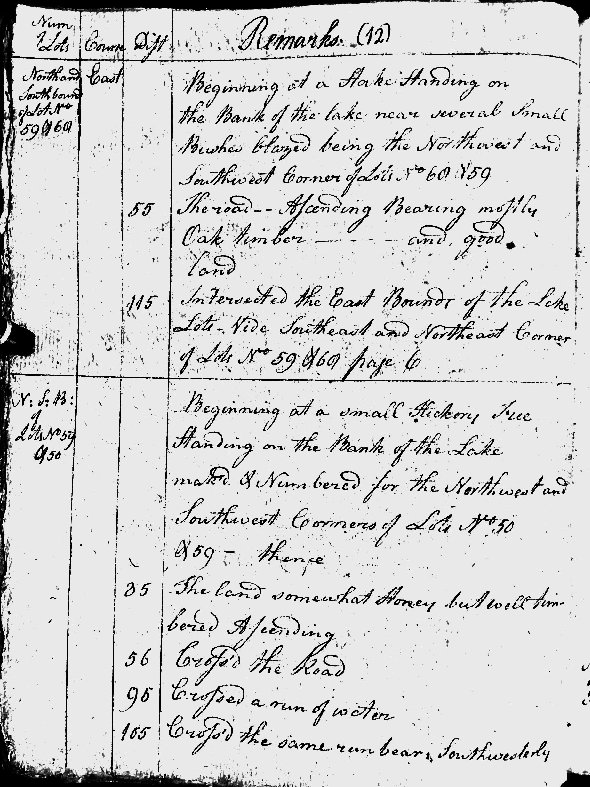 Num
of Lots Cours Dist Remarks. (12)
North and East Beginning at a Stake Standing on
South bound the Bank of the lake near several Small
of Lot No
59 & 60 Bushes blazed being the Northwest and
Southwest Corner of Lots No 60 & 59
55 The road -- Ascending Bearing mostly
Oak timber — - - - and good
land
115 Intersected the East Bounds of the Lake
Lots - Vide Southeast and Northeast Corner
of Lots No 59 & 60 page 6
N: S: B: Beginning at a small Hickory Tree
of
Lots No 59 Standing on the Bank of the Lake
& 50
mak'd & Numbered for the Northwest and
Southwest Corners of Lots No 50
& 59 - thence
35 The land somewhat Stoney but well tim-
bered Ascending
56 Cross'd the Road
95 Crossed a run of water
105 Cross'd the same run bears Southwesterly